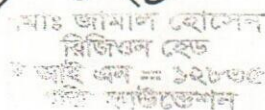 মোঃ জামাল হোসেন
রিজিওন হেড
আই এন — ১২৮৩৫
ফাউন্ডেশন